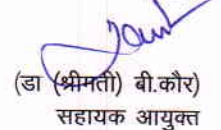 (डा (श्रीमती) बी.कौर)
सहायक आयुक्त